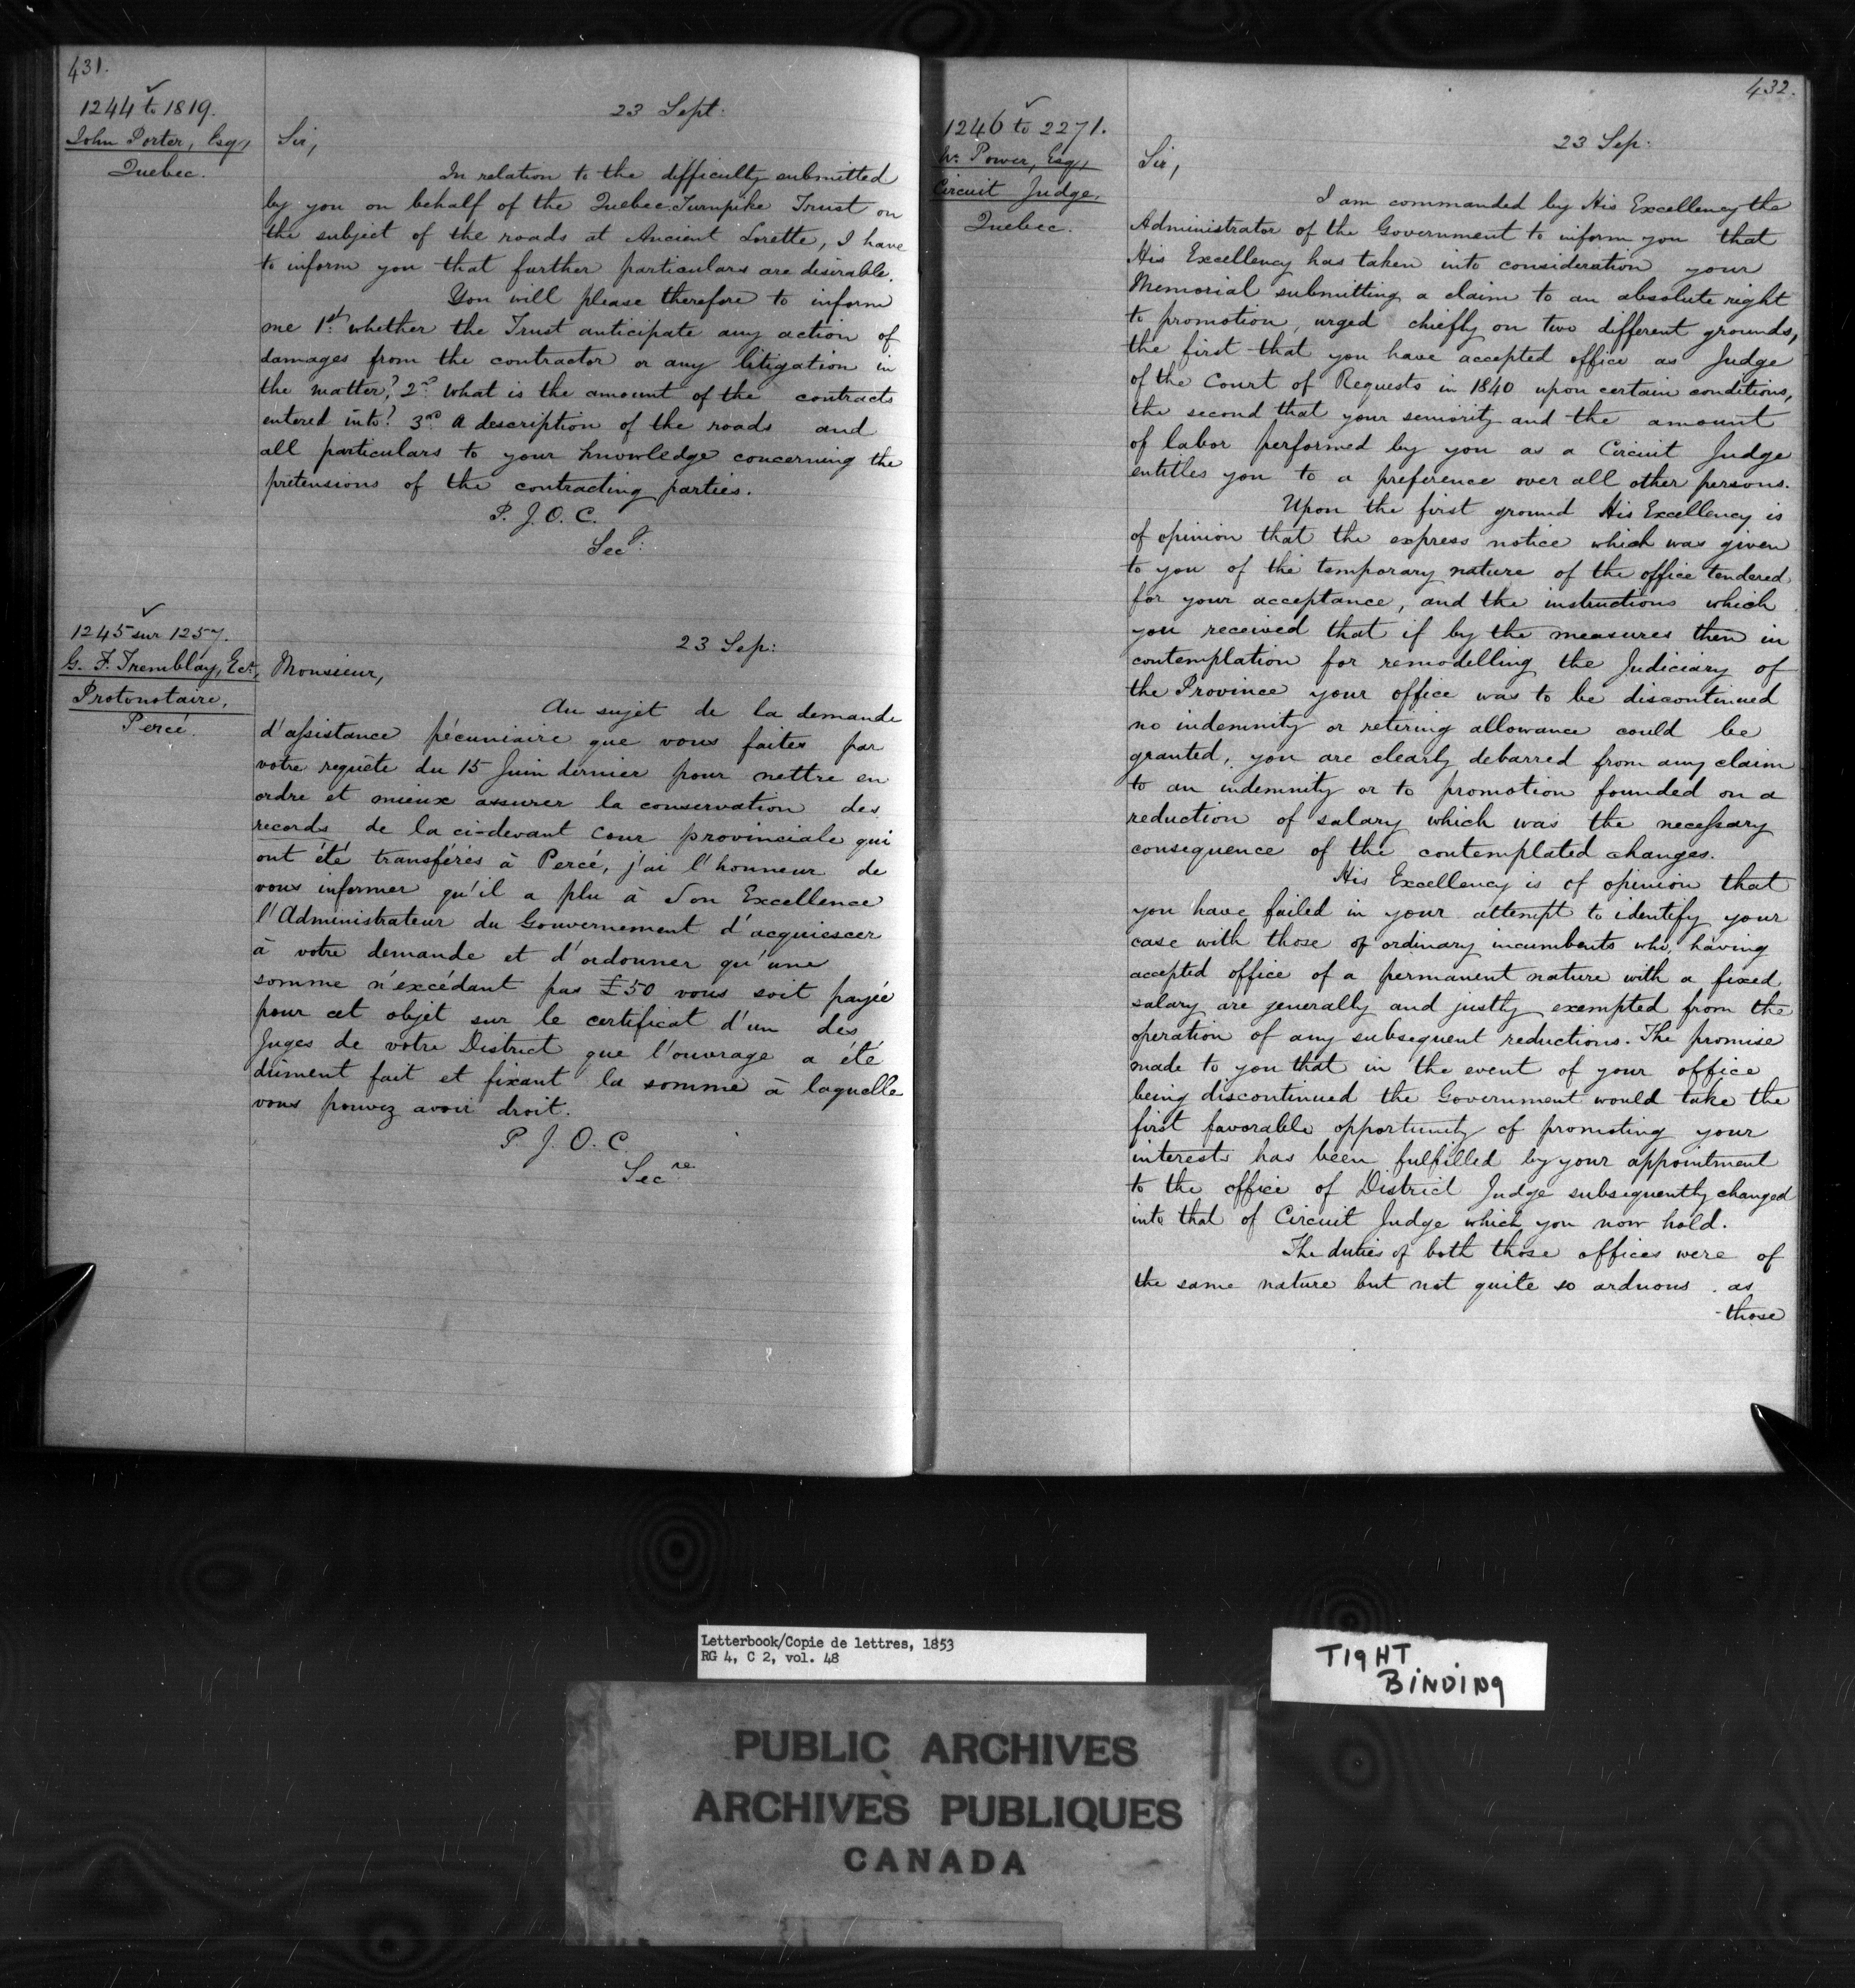 431.
1244 to 1819.
John Porter, Esq,
Quebec.
23 Sept.
Sir,
In relation to the difficulty submitted
by you on behalf of the Quebec Turnpike Trust on
the subject of the roads at Ancient Lorette, I have
to inform you that further particulars are desirable.
You will please therefore to inform
me 1st whether the Trust anticipate any action of
damages from the contractor or any litigation in
the matter? 2nd What is the amount of the contracts
entered into? 3rd A description of the roads and
all particulars to your knowledge concerning the
pretensions of the contracting parties.
P. J. O. C.
Secy:
1245 sur 1257.
G. F. Tremblay, Ect,
Protonotaire,
Percé.
23 Sep:
Monsieur,
Au sujet de la demande
d'assistance pécuniaire que vous faites par
votre requête du 15 Juin dernier pour mettre en
ordre et mieux assurer la conservation des
records de la ci-devant Cour provinciale qui
ont été transférés à Percé, j'ai l'honneur de
vous informer qu'il a plu à Son Excellence
l'Administrateur du Gouvernement d'acquiescer
à votre demande et d'ordonner qu'une
somme n'excédant pas £50 vous soit payée
pour cet objet sur le certificat d'un des
Juges de votre District que l'ouvrage a été
dûment fait et fixant la somme à laquelle
vous pouvez avoir droit.
P. J. O. C.
Secre
432.
1246 to 2271.
W. Power, Esq,
Circuit Judge,
Quebec.
23 Sep:
Sir,
I am commanded by His Excellency the
Administrator of the Government to inform you that
His Excellency has taken into consideration your
Memorial submitting a claim to an absolute right
to promotion, urged chiefly on two different grounds,
the first that you have accepted office as Judge
of the Court of Requests in 1840 upon certain conditions,
the second that your seniority and the amount
of labor performed by you as a Circuit Judge
entitles you to a preference over all other persons.
Upon the first ground His Excellency is
of opinion that the express notice which was given
to you of the temporary nature of the office tendered
for your acceptance, and the instructions which
you received that if by the measures then in
contemplation for remodelling the Judiciary of
the Province your office was to be discontinued
no indemnity or retiring allowance could be
granted, you are clearly debarred from any claim
to an indemnity or to promotion founded on a
reduction of salary which was the necessary
consequence of the contemplated changes.
His Excellency is of opinion that
you have failed in your attempt to identify your
case with those of ordinary incumbents who, having
accepted office of a permanent nature with a fixed
salary are generally and justly exempted from the
operation of any subsequent reductions. The promise
made to you that in the event of your office
being discontinued the Government would take the
first favorable opportunity of promoting your
interests has been fulfilled by your appointment
to the office of District Judge subsequently changed
into that of Circuit Judge which you now hold.
The duties of both those offices were of
the same nature but not quite so arduous as
those
Letterbook/Copie de lettres, 1853
RG 4, C 2, vol. 48
TIGHT
BINDING
PUBLIC ARCHIVES
ARCHIVES PUBLIQUES
CANADA